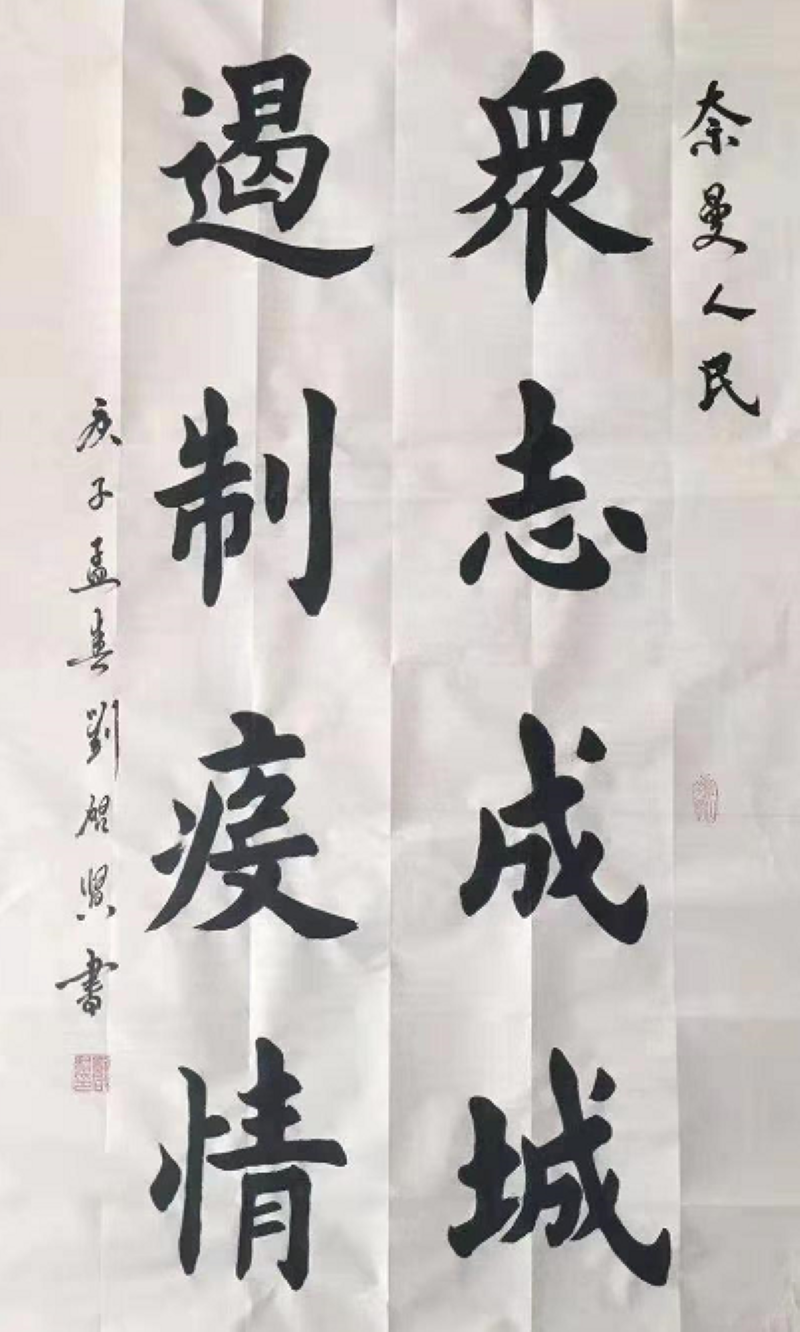 奈曼人民
眾志成城
遏制疫情
庚子孟春劉啟賢書